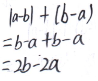 |a-b| + (b-a)
=b-a+b-a
=2b-2a